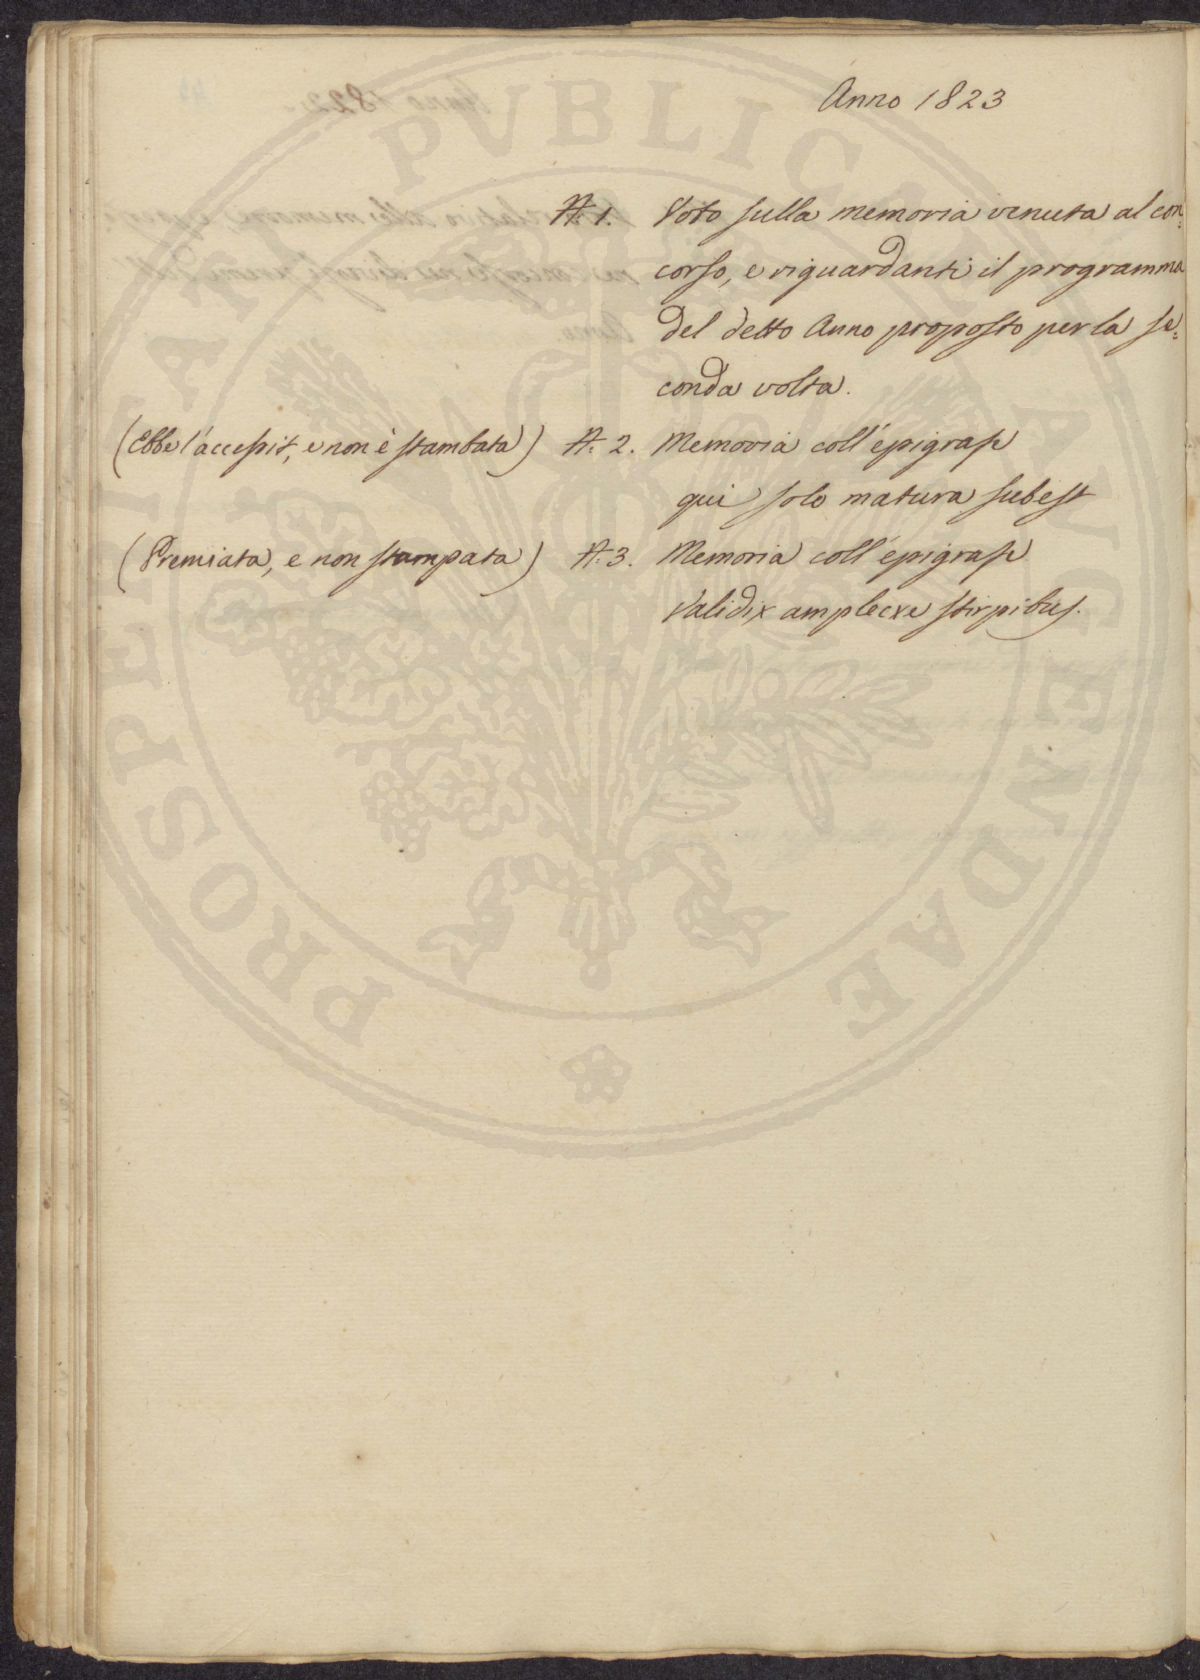 Anno 1823
N. 1. Voto sulla memoria venuta al con=
corso, e riguardanti il programma
del detto Anno proposto per la se=
conda volta.
(Ebbe l'accessit, e non è stambata) N. 2. Memoria coll'epigrafe
qui solo matura subest
(Premiata, e non stampata) N. 3. Memoria coll'epigrafe
Validix amplexe stirpibus.
PROSPERITATI PUBLICAE AUGENDAE